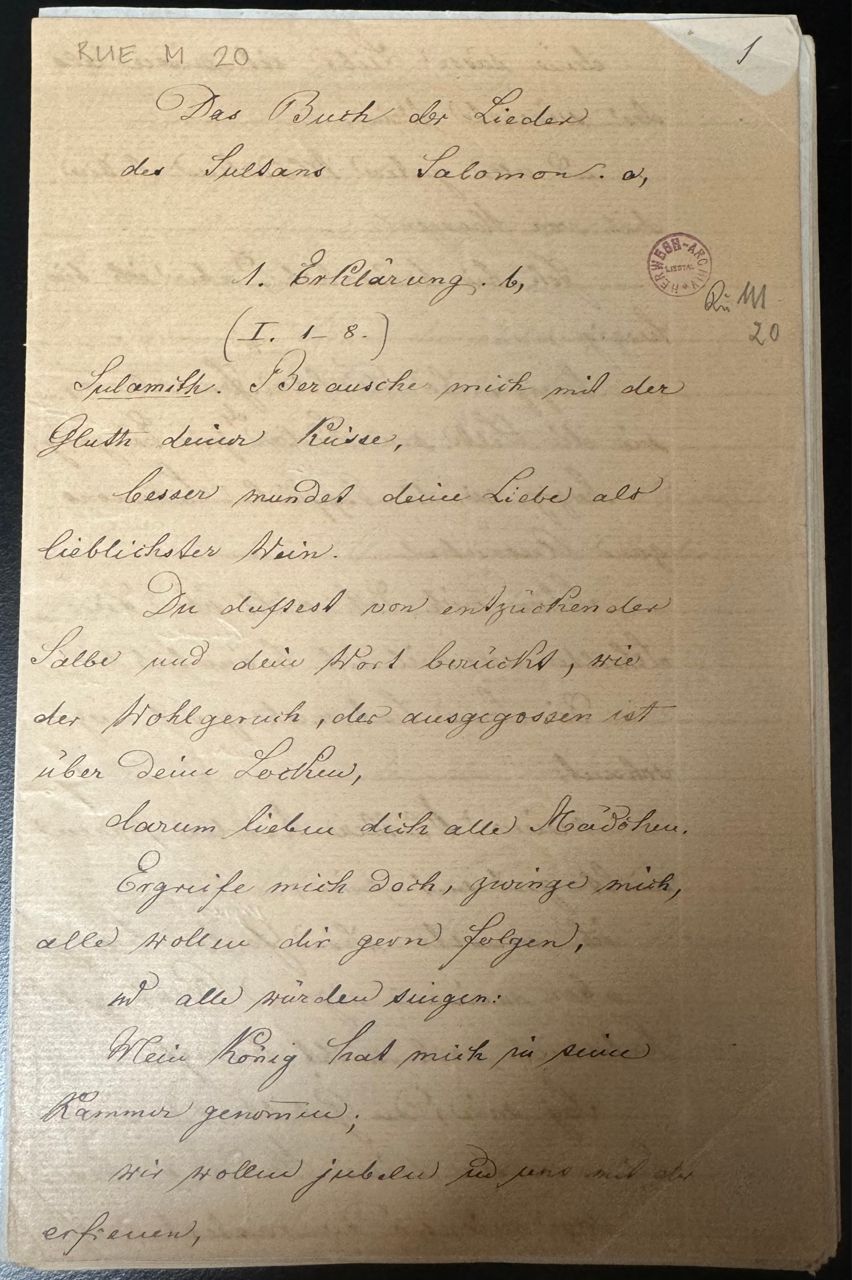 RUE M 20
1
Das Buch der Lieder
des Sultans Salomon. a,
HERWEGH-ARCHIV
LIESTAL
Rü M
20
1. Erklärung. b,
(I. 1-8.)
Sulamith. Berausche mich mit der
Gluth deiner Küsse,
besser mundet deine Liebe als
lieblichster Wein.
Du duftest von entzückender
Salbe und dein Wort berückt, wie
der Wohlgeruch, der ausgegossen ist
über deine Locken,
darum lieben dich alle Mädchen.
Ergreife mich doch, zwinge mich,
alle wollen dir gern folgen,
und alle würden singen:
Mein König hat mich in seine
Kammer genommen;
wir wollen jubeln und uns mit dir
erfreuen,